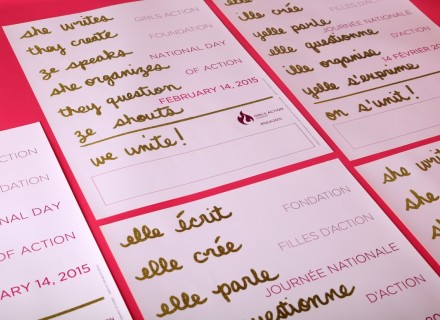 she writes
GIRLS ACTION
they create
FOUNDATION
ze speaks
NATIONAL DAY
she organizes
OF ACTION
they question
FEBRUARY 14, 2015
ze shouts
we unite!
GIRLS ACTION
elle crée
FILLES D'ACTION
yelle parle
JOURNÉE NATIONALE
elle questionne
D'ACTION
ille organise
14 FÉVRIER
yelle s'exprime
on s'unit!
ACTION
NATIONAL DAY
OF ACTION
14, 2015
elle écrit
FONDATION
elle crée
FILLES D'ACTION
elle parle
JOURNÉE NATIONALE
questionne
D'ACTION
she